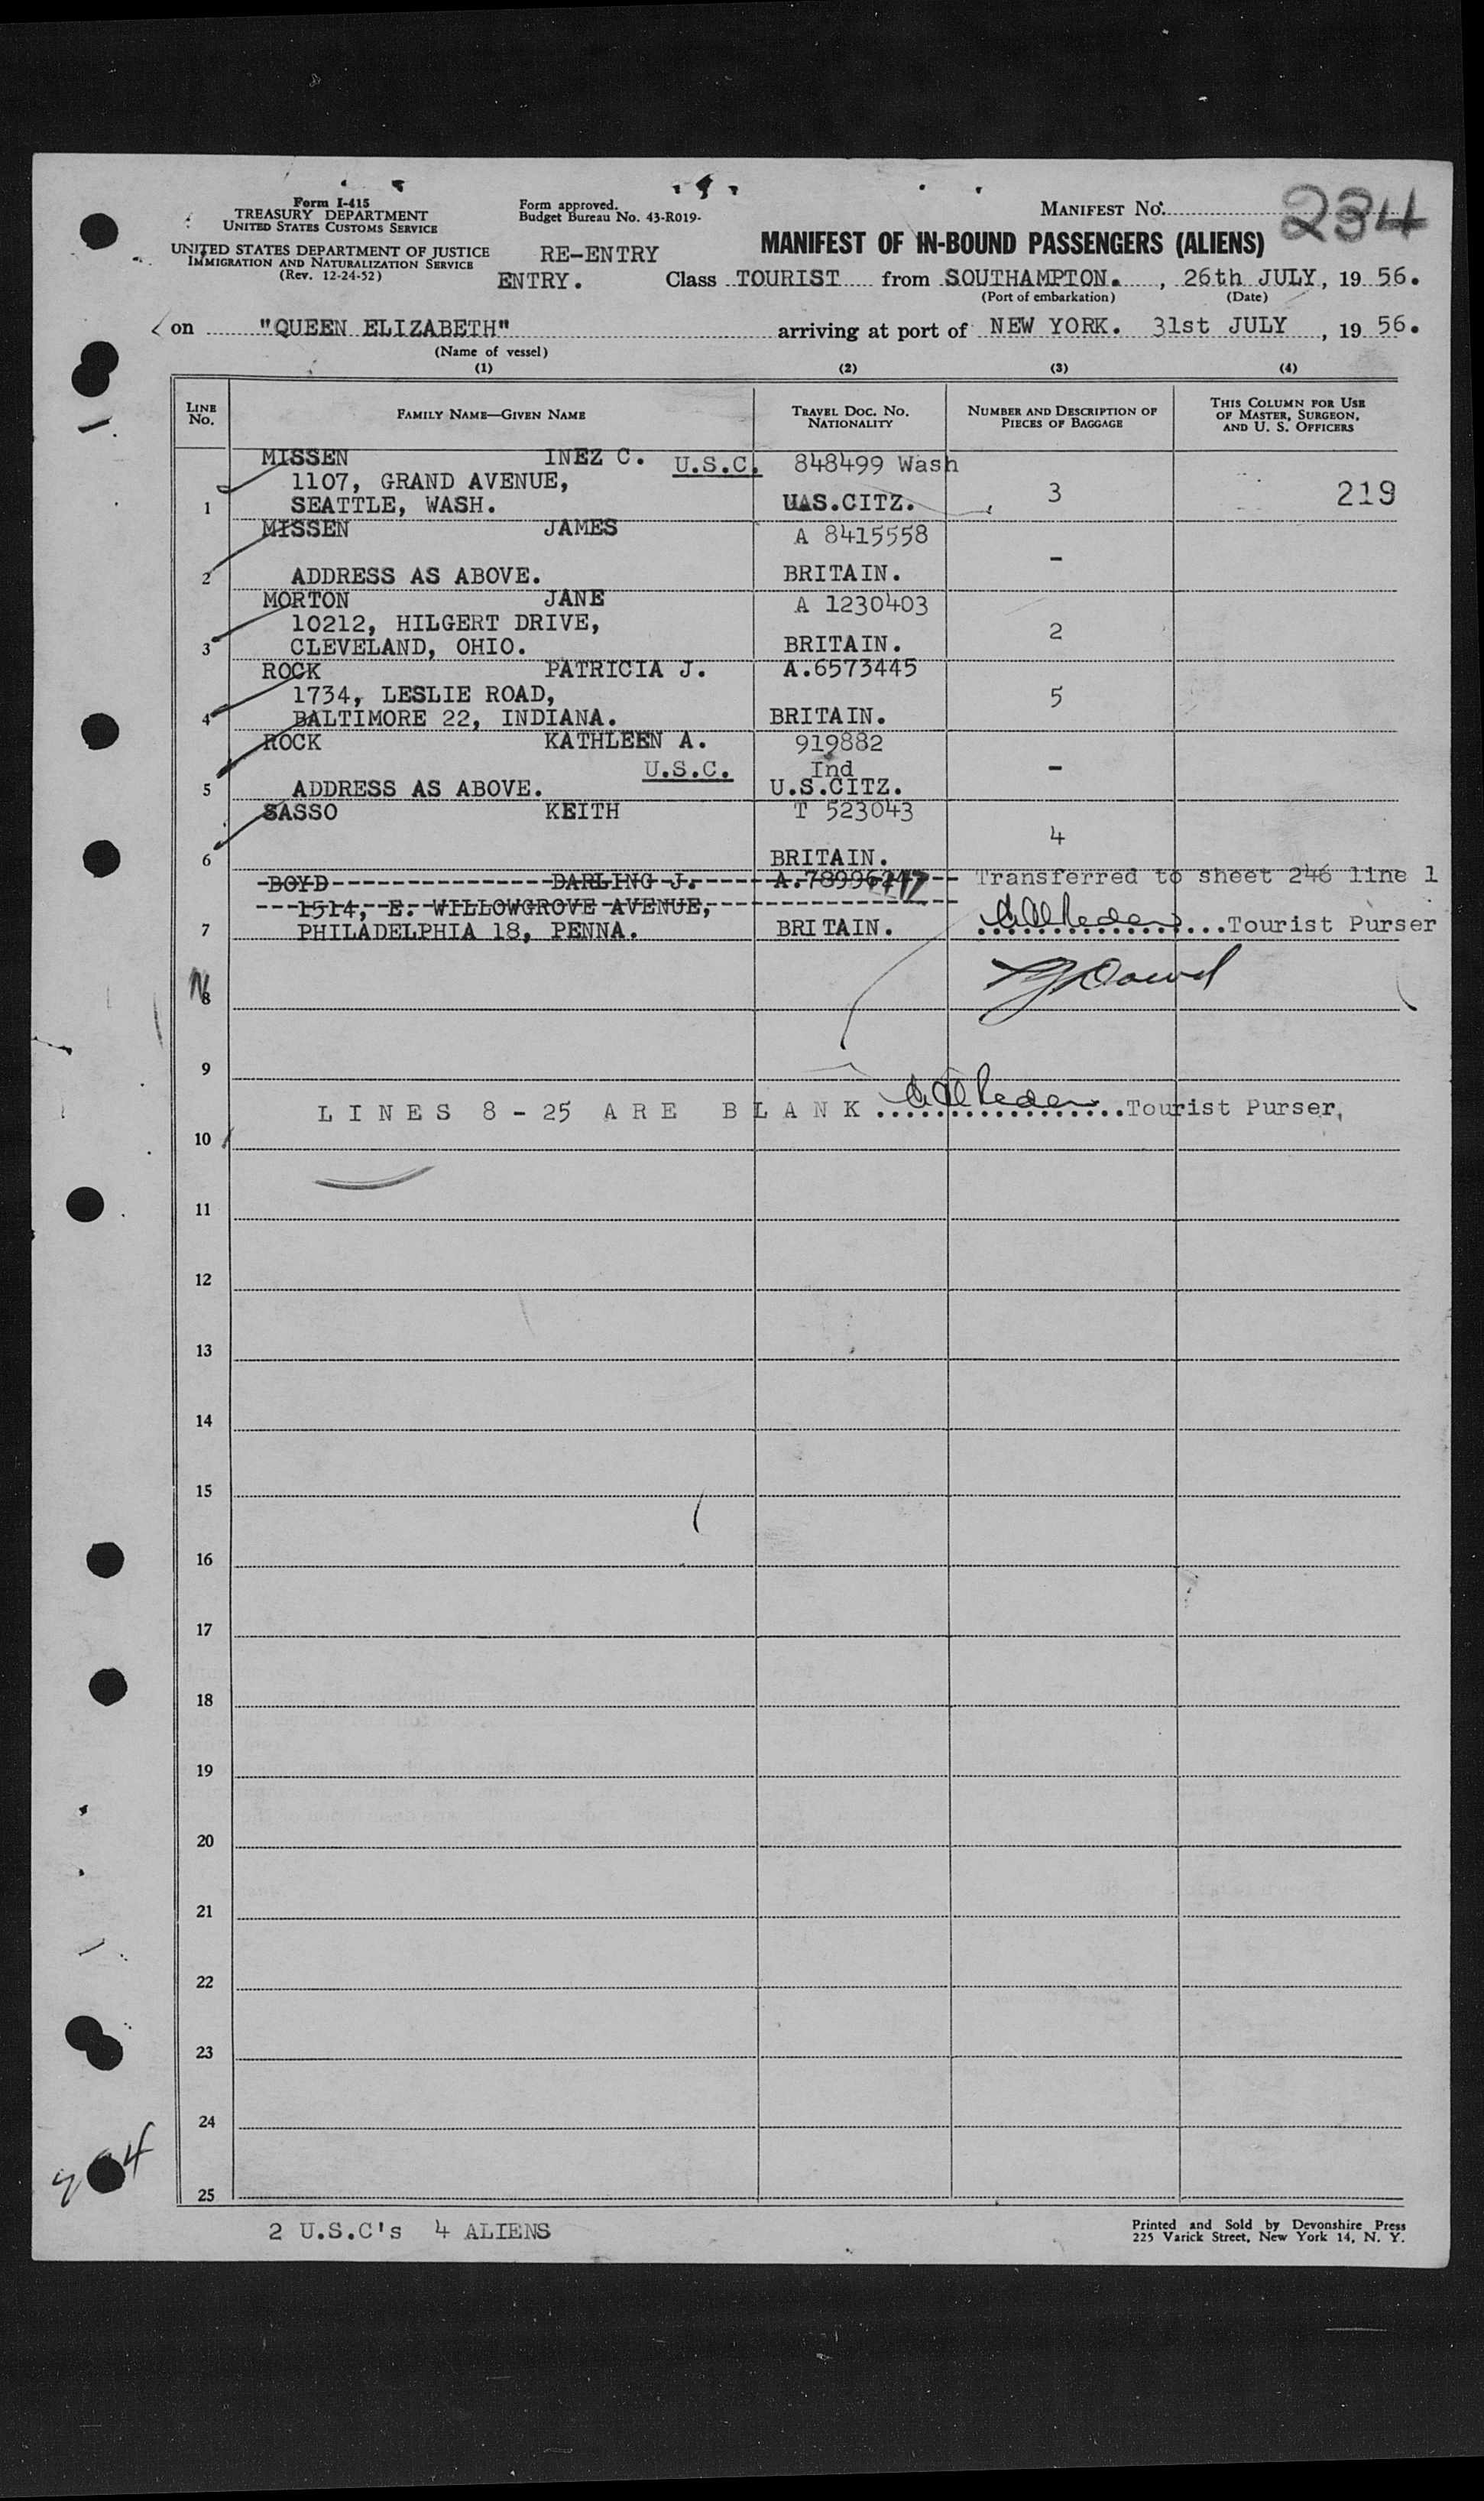 Form I-415
TREASURY DEPARTMENT
UNITED STATES CUSTOMS SERVICE
UNITED STATES DEPARTMENT OF JUSTICE
IMMIGRATION AND NATURALIZATION SERVICE
(Rev. 12-24-52)
Form approved.
Budget Bureau No. 43-R019-
MANIFEST No. 234
RE-ENTRY
ENTRY.
MANIFEST OF IN-BOUND PASSENGERS (ALIENS)
Class TOURIST from SOUTHAMPTON. , 26th JULY, 19 56.
(Port of embarkation) (Date)
on "QUEEN ELIZABETH" arriving at port of NEW YORK. 31st JULY , 19 56.
(Name of vessel)
(1) (2) (3) (4)
LINE No. FAMILY NAME—GIVEN NAME TRAVEL DOC. NO. NATIONALITY NUMBER AND DESCRIPTION OF PIECES OF BAGGAGE THIS COLUMN FOR USE OF MASTER, SURGEON, AND U. S. OFFICERS
MISSEN INEZ C. U.S.C. 848499 Wash
1107, GRAND AVENUE,
1 SEATTLE, WASH. U.S.CITZ. 3 219
MISSEN JAMES A 8415558
2 ADDRESS AS ABOVE. BRITAIN. -
MORTON JANE A 1230403
10212, HILGERT DRIVE,
3 CLEVELAND, OHIO. BRITAIN. 2
ROCK PATRICIA J. A.6573445
1734, LESLIE ROAD,
4 BALTIMORE 22, INDIANA. BRITAIN. 5
ROCK KATHLEEN A. 919882
U.S.C. Ind
5 ADDRESS AS ABOVE. U.S.CITZ. -
SASSO KEITH T 523043
6 BRITAIN. 4
BOYD DARLING J. Transferred to sheet 246 line 1
1514, E. WILLOWGROVE AVENUE,
7 PHILADELPHIA 18, PENNA. BRITAIN. Tourist Purser
N
8
9
LINES 8 - 25 ARE BLANK Tourist Purser,
10
11
12
13
14
15
16
17
18
19
20
21
22
23
24
25
2 U.S.C's 4 ALIENS
Printed and Sold by Devonshire Press
225 Varick Street, New York 14, N. Y.